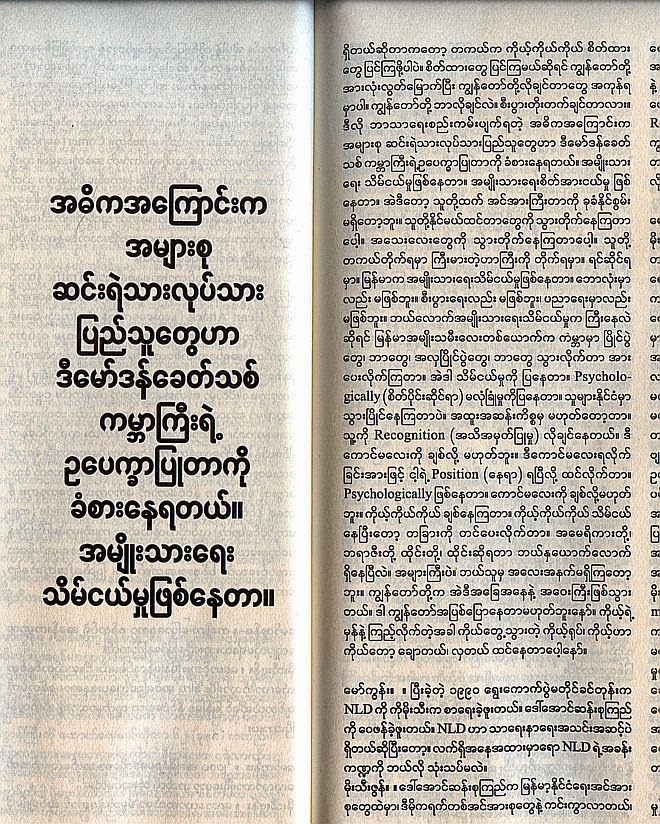 အဓိကအကြောင်းက
အများစု
ဆင်းရဲသားလုပ်သား
ပြည်သူတွေဟာ
ဒီမော်ဒန်ခေတ်သစ်
ကမ္ဘာကြီးရဲ့
ဥပေက္ခာပြုတာကို
ခံစားနေရတယ်။
အမျိုးသားရေး
သိမ်ငယ်မှုဖြစ်နေတာ။
ရှိတယ်ဆိုတာကတော့ တကယ်က ကိုယ့်ကိုယ်ကိုယ် စိတ်ထား
တွေ ပြင်ကြဖို့ပါပဲ။ စိတ်ထားတွေ ပြင်ကြမယ်ဆိုရင် ကျွန်တော်တို့
အားလုံးလွတ်မြောက်ပြီး ကျွန်တော်တို့လိုချင်တာတွေ အကုန်ရ
မှာပါ။ ကျွန်တော်တို့ ဘာလိုချင်လဲ။ စီးပွားတိုးတက်ချင်တာလား။
ဒီလို ဘာသာရေးစည်းကမ်းပျက်ရတဲ့ အဓိကအကြောင်းက
အများစု ဆင်းရဲသားလုပ်သားပြည်သူတွေဟာ ဒီမော်ဒန်ခေတ်
သစ် ကမ္ဘာကြီးရဲ့ဥပေက္ခာပြုတာကို ခံစားနေရတယ်။ အမျိုးသား
ရေး သိမ်ငယ်မှုဖြစ်နေတာ။ အမျိုးသားရေးစိတ်အားငယ်မှု ဖြစ်
နေတာ။ အဲဒီတော့ သူတို့ထက် အင်အားကြီးတာကို ခုခံနိုင်စွမ်း
မရှိတော့ဘူး။ သူတို့နိုင်မယ်ထင်တာတွေကို သွားတိုက်နေကြတာ
ပေါ့။ အသေးလေးတွေကို သွားတိုက်နေကြတာပေါ့။ သူတို့
တကယ်တိုက်ရမှာ ကြီးမားတဲ့ဟာကြီးကို တိုက်ရမှာ။ ရင်ဆိုင်ရ
မှာ။ မြန်မာက အမျိုးသားရေးသိမ်ငယ်မှုဖြစ်နေတာ။ ဘောလုံးမှာ
လည်း မဖြစ်ဘူး။ စီးပွားရေးလည်း မဖြစ်ဘူး၊ ပညာရေးမှာလည်း
မဖြစ်ဘူး။ ဘယ်လောက်အမျိုးသားရေးသိမ်ငယ်မှုက ကြီးနေလဲ
ဆိုရင် မြန်မာအမျိုးသမီးလေးတစ်ယောက်က ကမ္ဘာမှာ ပြိုင်ပွဲ
တွေ၊ ဘာတွေ၊ အလှပြိုင်ပွဲတွေ၊ ဘာတွေ သွားလိုက်တာ အား
ပေးလိုက်ကြတာ။ အဲဒါ သိမ်ငယ်မှုကို ပြနေတာ။ Psycholo-
gically (စိတ်ပိုင်းဆိုင်ရာ) မလုံခြုံမှုကိုပြနေတာ။ သူများနိုင်ငံမှာ
သွားပြိုင်နေကြတာပဲ။ အထူးအဆန်းကိစ္စမှ မဟုတ်တော့တာ။
သူ့ကို Recognition (အသိအမှတ်ပြုမှု) လိုချင်နေတယ်။ ဒီ
ကောင်မလေးကို ချစ်လို့ မဟုတ်ဘူး။ ဒီကောင်မလေးရလိုက်
ခြင်းအားဖြင့် ငါ့ရဲ့ Position (နေရာ) ရပြီလို့ ထင်လိုက်တာ။
Psychologically ဖြစ်နေတာ။ ကောင်မလေးကို ချစ်လို့မဟုတ်
ဘူး။ ကိုယ့်ကိုယ်ကိုယ် ချစ်နေကြတာ။ ကိုယ့်ကိုယ်ကိုယ် သိမ်ငယ်
နေပြီးတော့ တခြားကို တင်ပေးလိုက်တာ။ အမေရိကားတို့၊
ဘရာဇီးတို့၊ ထိုင်းတို့၊ ထိုင်းဆိုရတာ ဘယ်နှယောက်လောက်
ရှိနေပြီလဲ။ အများကြီးပဲ။ ဘယ်သူမှ အလေးအနက်မရှိကြတော့
ဘူး။ ကျွန်တော်တို့က အဲဒီအခြေအနေနဲ့ အဝေးကြီးဖြစ်သွား
တယ်။ ဒါ ကျွန်တော်အပြစ်ပြောနေတာမဟုတ်ဘူးနော်။ ကိုယ့်ရဲ့
မှန်နဲ့ ကြည့်လိုက်တဲ့အခါ ကိုယ်တွေ့သွားတဲ့ ကိုယ့်ရုပ်၊ ကိုယ့်ဟာ
ကိုယ်တော့ ချောတယ်၊ လှတယ် ထင်နေတာပေါ့နော်။
မော်ကွန်း။ ။ ပြီးခဲ့တဲ့ ၁၉၉၀ ရွေးကောက်ပွဲမတိုင်ခင်တုန်းက
NLD ကို ကိုမိုးသီးက စာရေးခဲ့ဖူးတယ်။ ဒေါ်အောင်ဆန်းစုကြည်
ကို ဝေဖန်ခဲ့ဖူးတယ်။ NLD ဟာ သာရေးနာရေးအသင်းအဆင့်ပဲ
ရှိတယ်ဆိုပြီးတော့။ လက်ရှိအနေအထားမှာရော NLD ရဲ့အခန်း
ကဏ္ဍကို ဘယ်လို သုံးသပ်မလဲ။
မိုးသီးဇွန်။ ။ ဒေါ်အောင်ဆန်းစုကြည်က မြန်မာ့နိုင်ငံရေးအင်အား
စုတွေထဲမှာ၊ ဒီမိုကရက်တစ်အင်အားစုတွေနဲ့ ကင်းကွာလာတယ်။